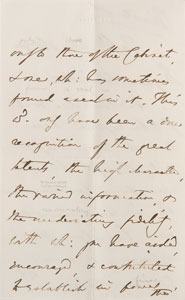 only those of the Cabinet,
& ones, wh: has sometimes
found a seat in it. This
wd. only have been a due
recognition of the great
talents, the high character,
the varied information, &
the unwavering fidelity,
with wh: you have aided,
encouraged, & contributed
to establish in power the